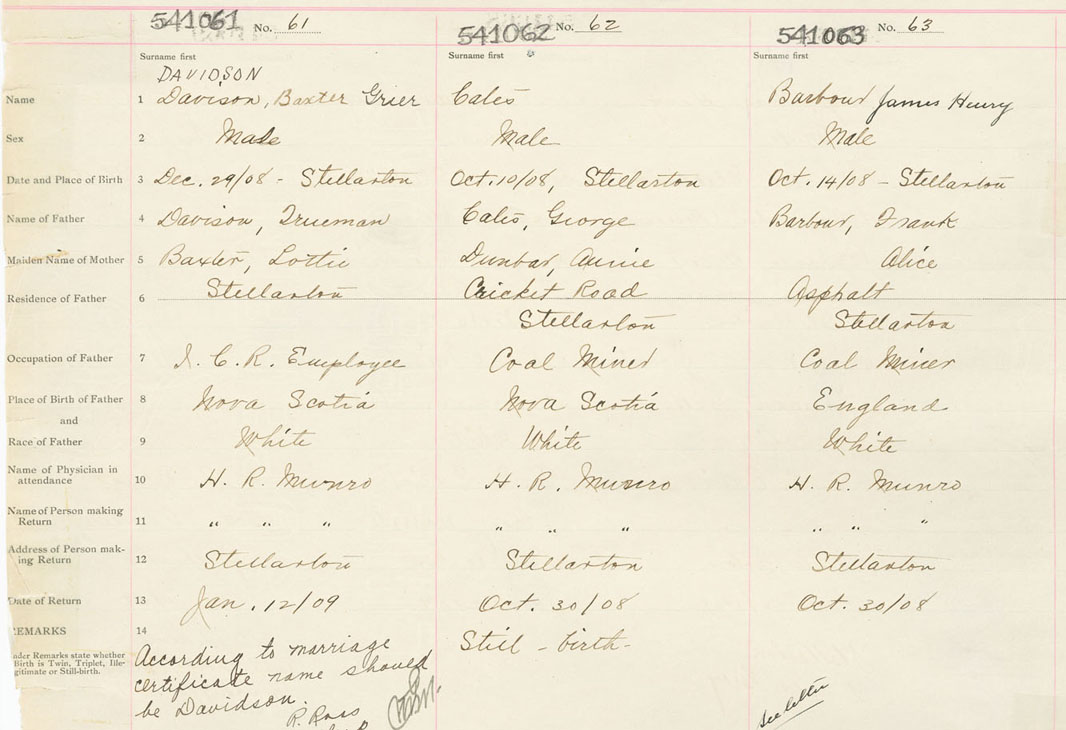 541061 No. 61 541062 No. 62 541063 No. 63
Surname first Surname first Surname first
DAVIDSON
Name 1 Davison, Baxter Grier Cales Barbour James Henry
Sex 2 Male Male Male
Date and Place of Birth 3 Dec. 29/08 - Stellarton Oct. 10/08, Stellarton Oct. 14/08 - Stellarton
Name of Father 4 Davison, Trueman Cales, George Barbour, Frank
Maiden Name of Mother 5 Baxter, Lottie Dunbar, Annie Alice
Residence of Father 6 Stellarton Cricket Road Asphalt
Stellarton Stellarton
Occupation of Father 7 I. C. R. Employee Coal Miner Coal Miner
Place of Birth of Father 8 Nova Scotia Nova Scotia England
and
Race of Father 9 White White White
Name of Physician in
attendance 10 H. R. Munro H. R. Munro H. R. Munro
Name of Person making
Return 11 " " " " " " " " "
Address of Person mak-
ing Return 12 Stellarton Stellarton Stellarton
Date of Return 13 Jan. 12/09 Oct. 30/08 Oct. 30/08
EMARKS 14 Still - birth -
nder Remarks state whether
Birth is Twin, Triplet, Ille-
gitimate or Still-birth.
According to marriage
certificate name should
be Davidson.
R. Ross
see letter